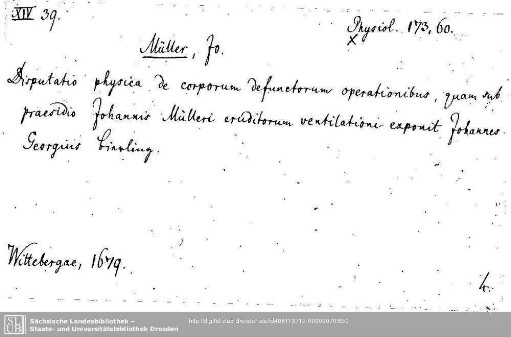 XIV 39.
Physiol. 173, 60.
x
Müller, Jo.
Disputatio physica de corporum defunctorum operationibus, quam sub
praesidio Johannis Mülleri eruditorum ventilationi exponit Johannes
Georgius
Wittebergae, 1679.
4.
SLUB
Sächsische Landesbibliothek –
Staats- und Universitätsbibliothek Dresden